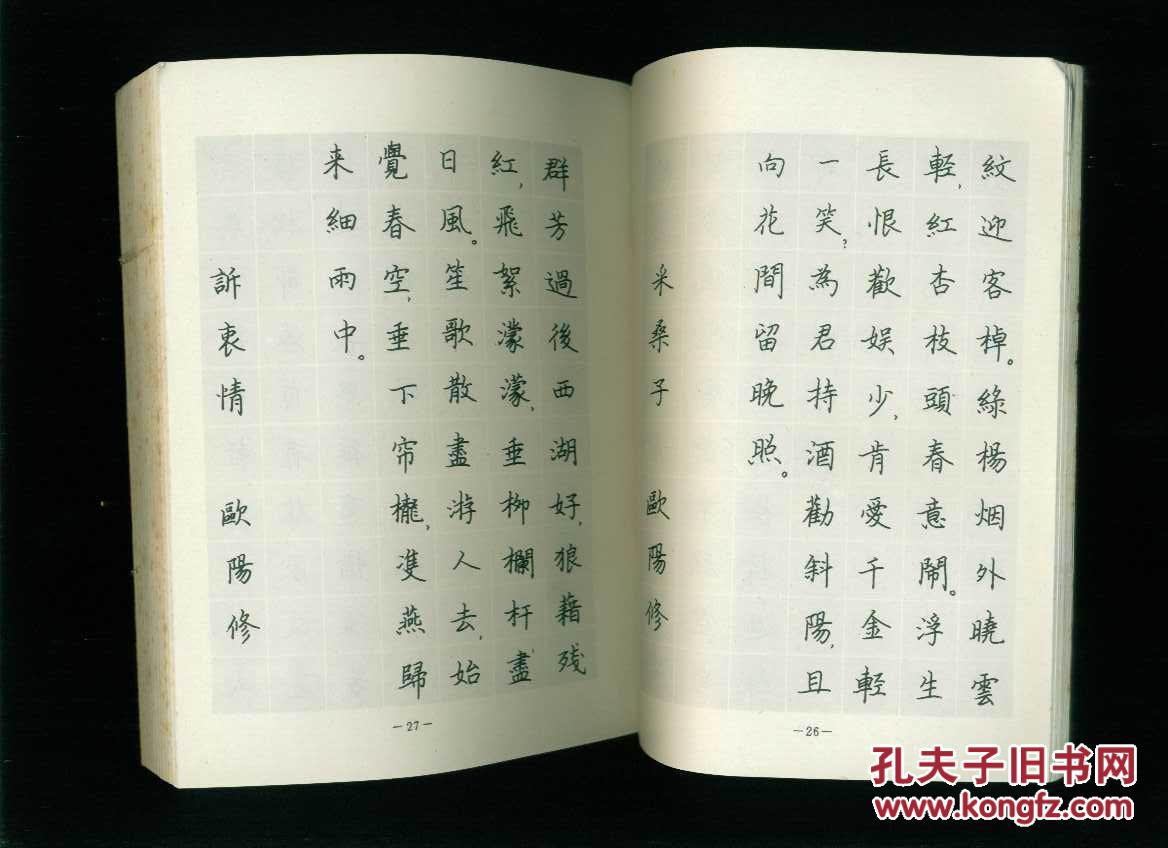 紋迎客棹。綠楊烟外曉雲
輕，紅杏枝頭春意鬧。浮生
長恨歡娱少，肯愛千金輕
一笑，為君持酒勸斜陽，且
向花間留晚照。
采桑子 歐陽修
-26-
群芳過後西湖好，狼藉残
紅，飛絮濛濛，垂柳欄杆盡
日風。笙歌散盡游人去，始
覺春空，垂下帘櫳，雙燕歸
来細雨中。
訴衷情 歐陽修
-27-
孔夫子旧书网
www.kongfz.com